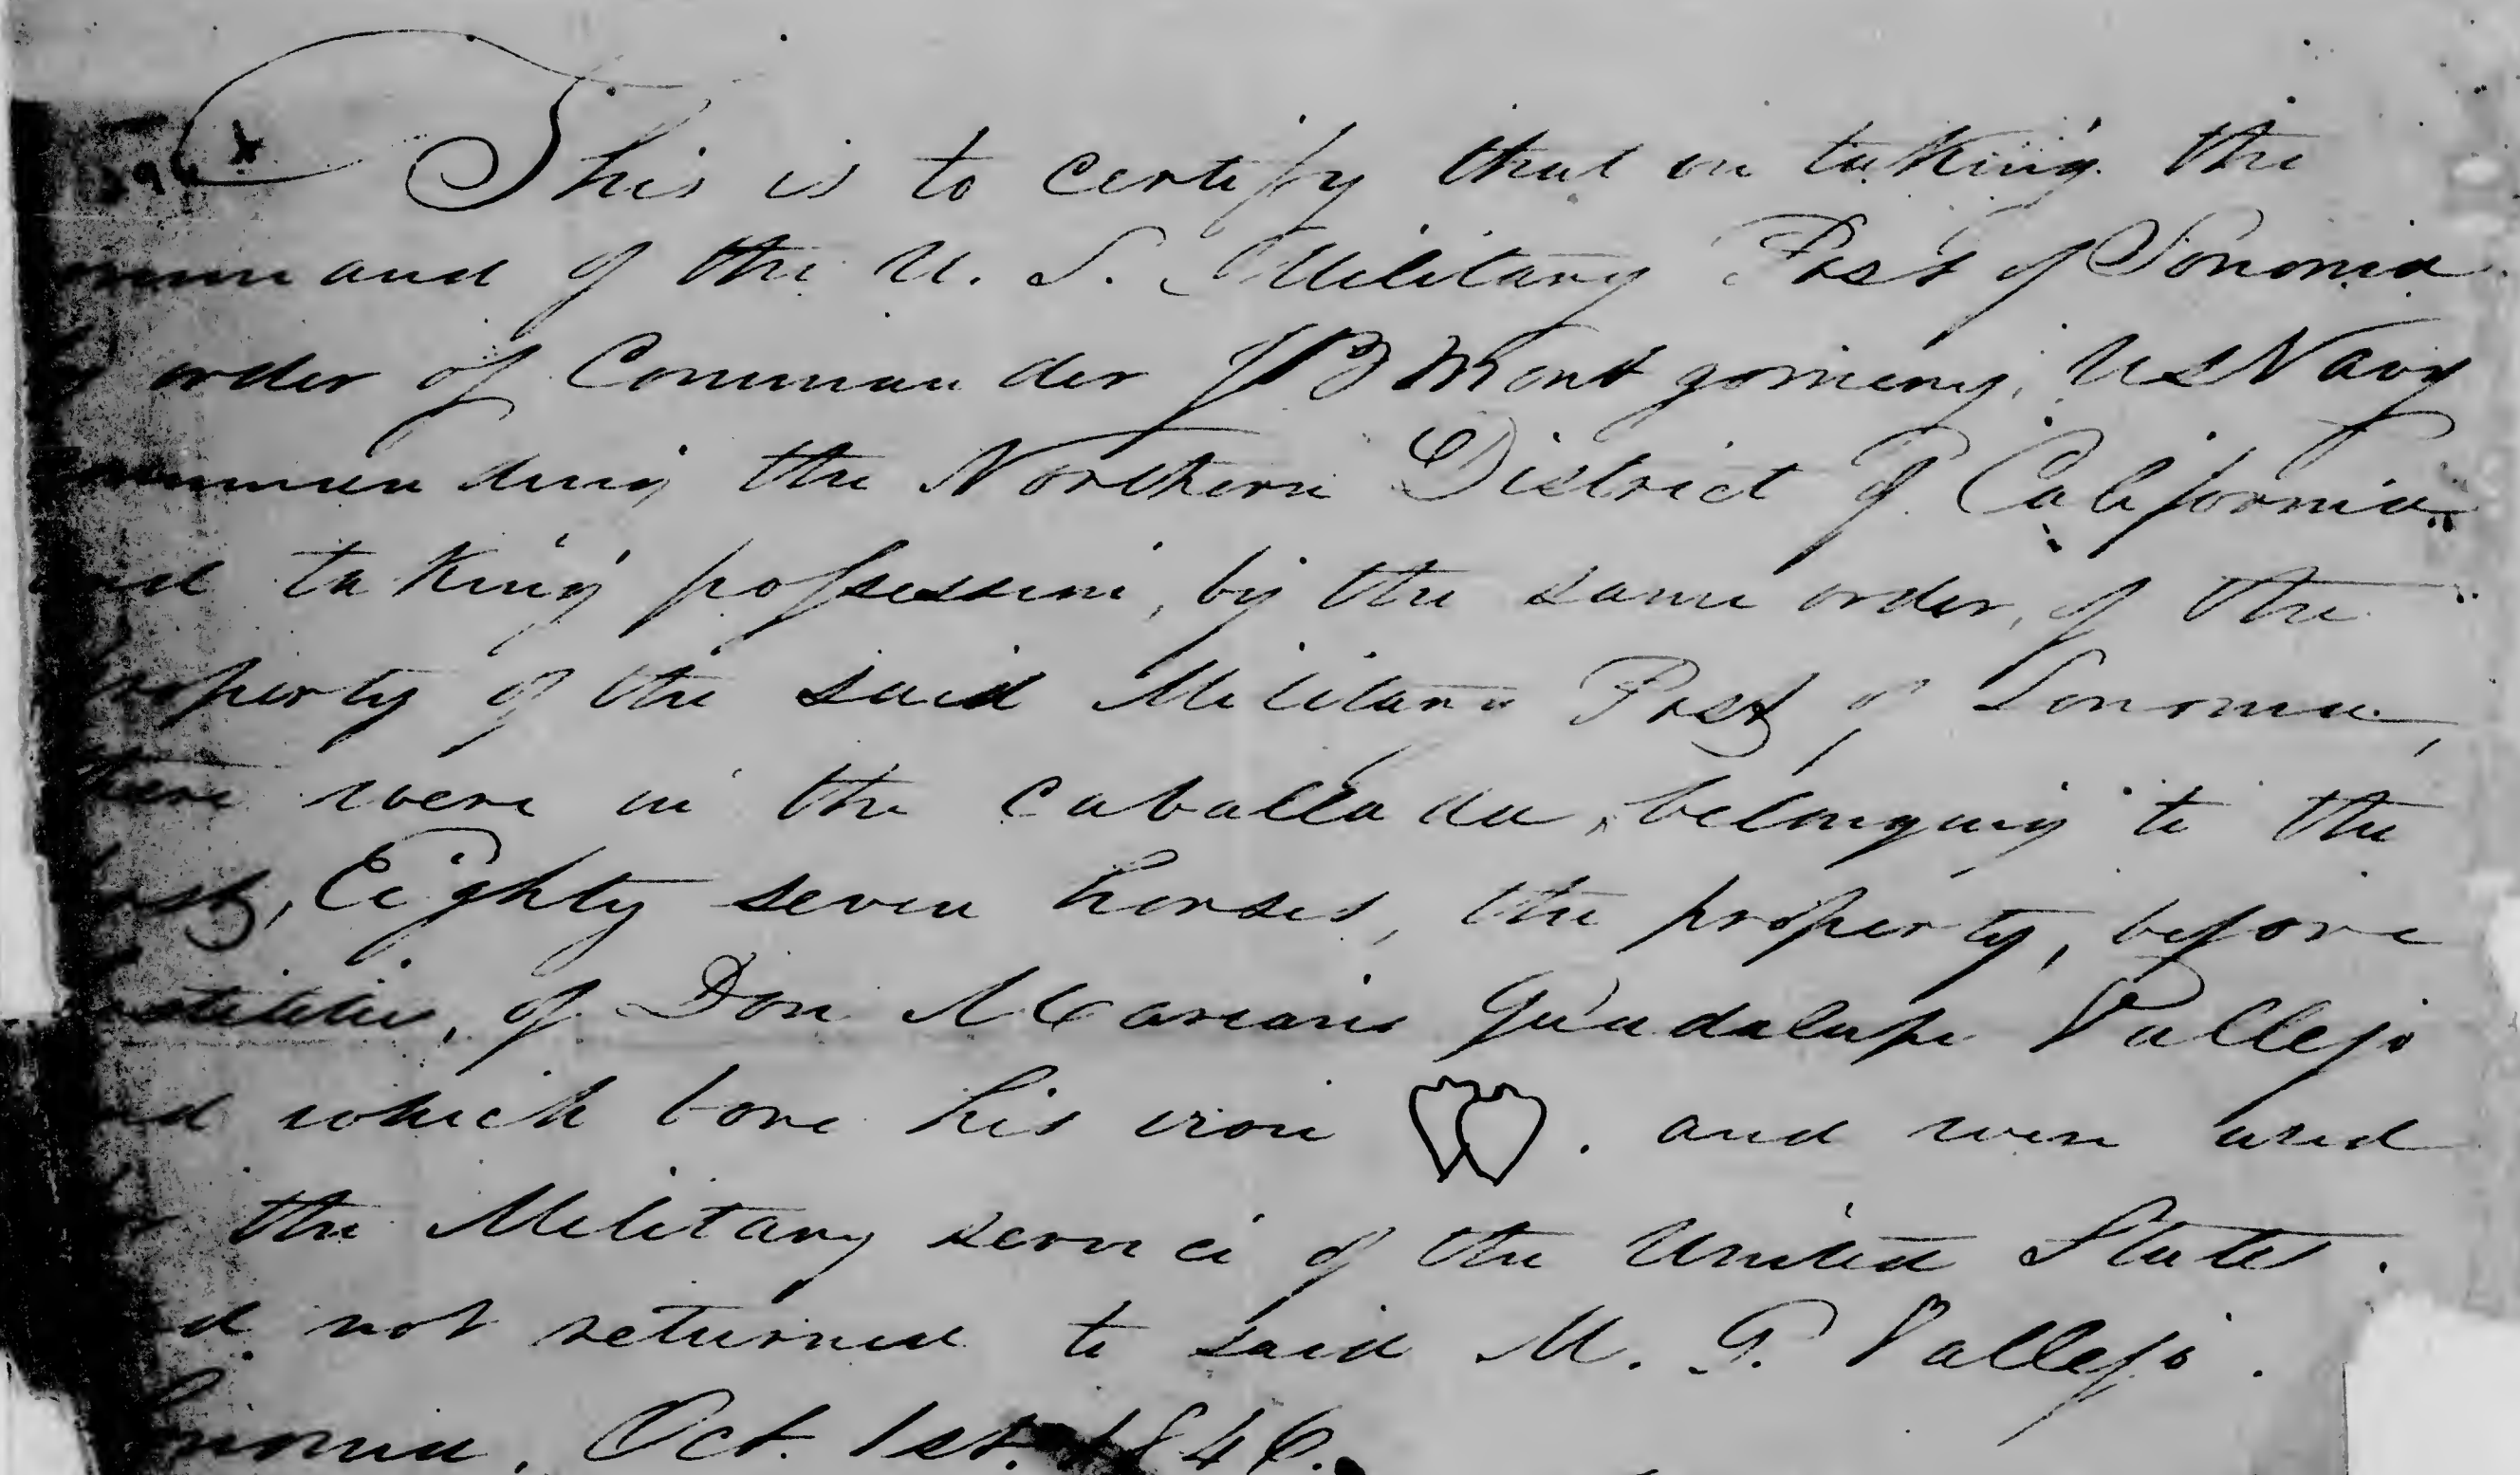 This is to certify that on taking the
command of the U. S. Military Post of Sonoma
order of Commander J B Montgomery, U S Navy
commanding the Northern District of California
and taking possession, by the same order, of the
property of the said Military Post of Sonoma,
there were in the caballada, belonging to the
Post, Eighty seven horses, the property, before
of Don Mariano Guadalupe Vallejo
and which bore his iron . and were used
the Military service of the United States.
and not returned to said M. G. Vallejo.
Sonoma, Oct. 1st. 1846.